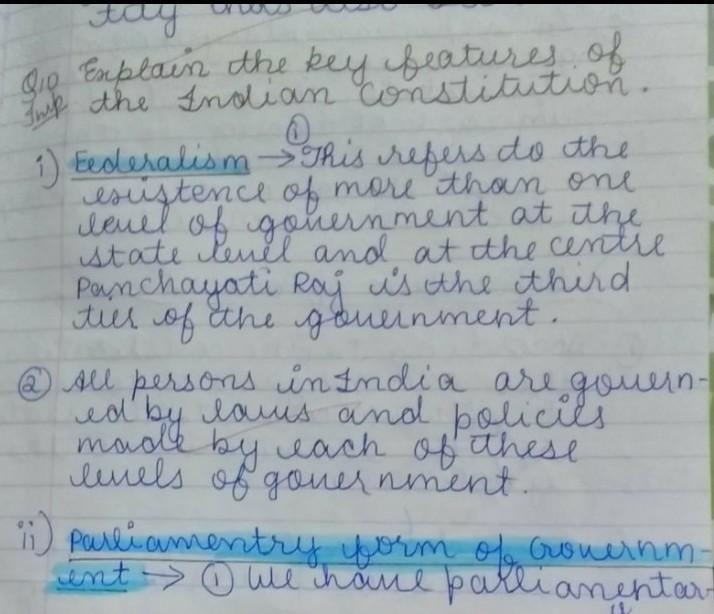 Q10 Explain the key features of
Imp the Indian Constitution.
i) Federalism → ① This refers to the
existence of more than one
level of government at the
state level and at the centre
Panchayati Raj is the third
tier of the government.
② All persons in India are govern-
ed by laws and policies
made by each of these
levels of government.
ii) Parliamentry form of Governm-
ent → ① We have parliamentar-